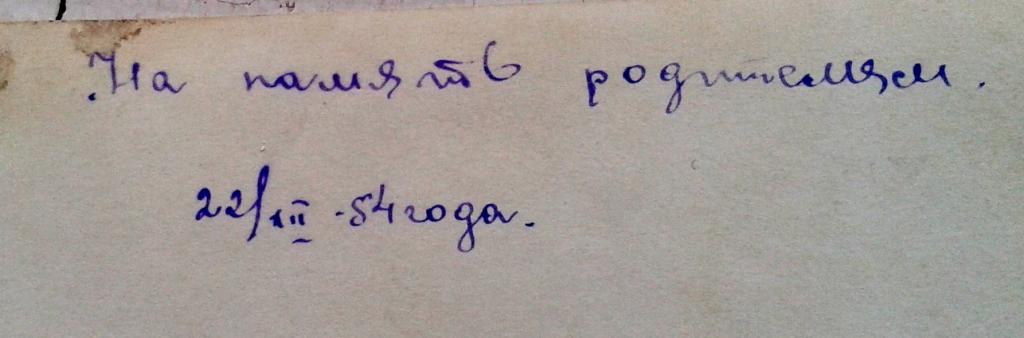 На память родителям.
22/XII-54 года.